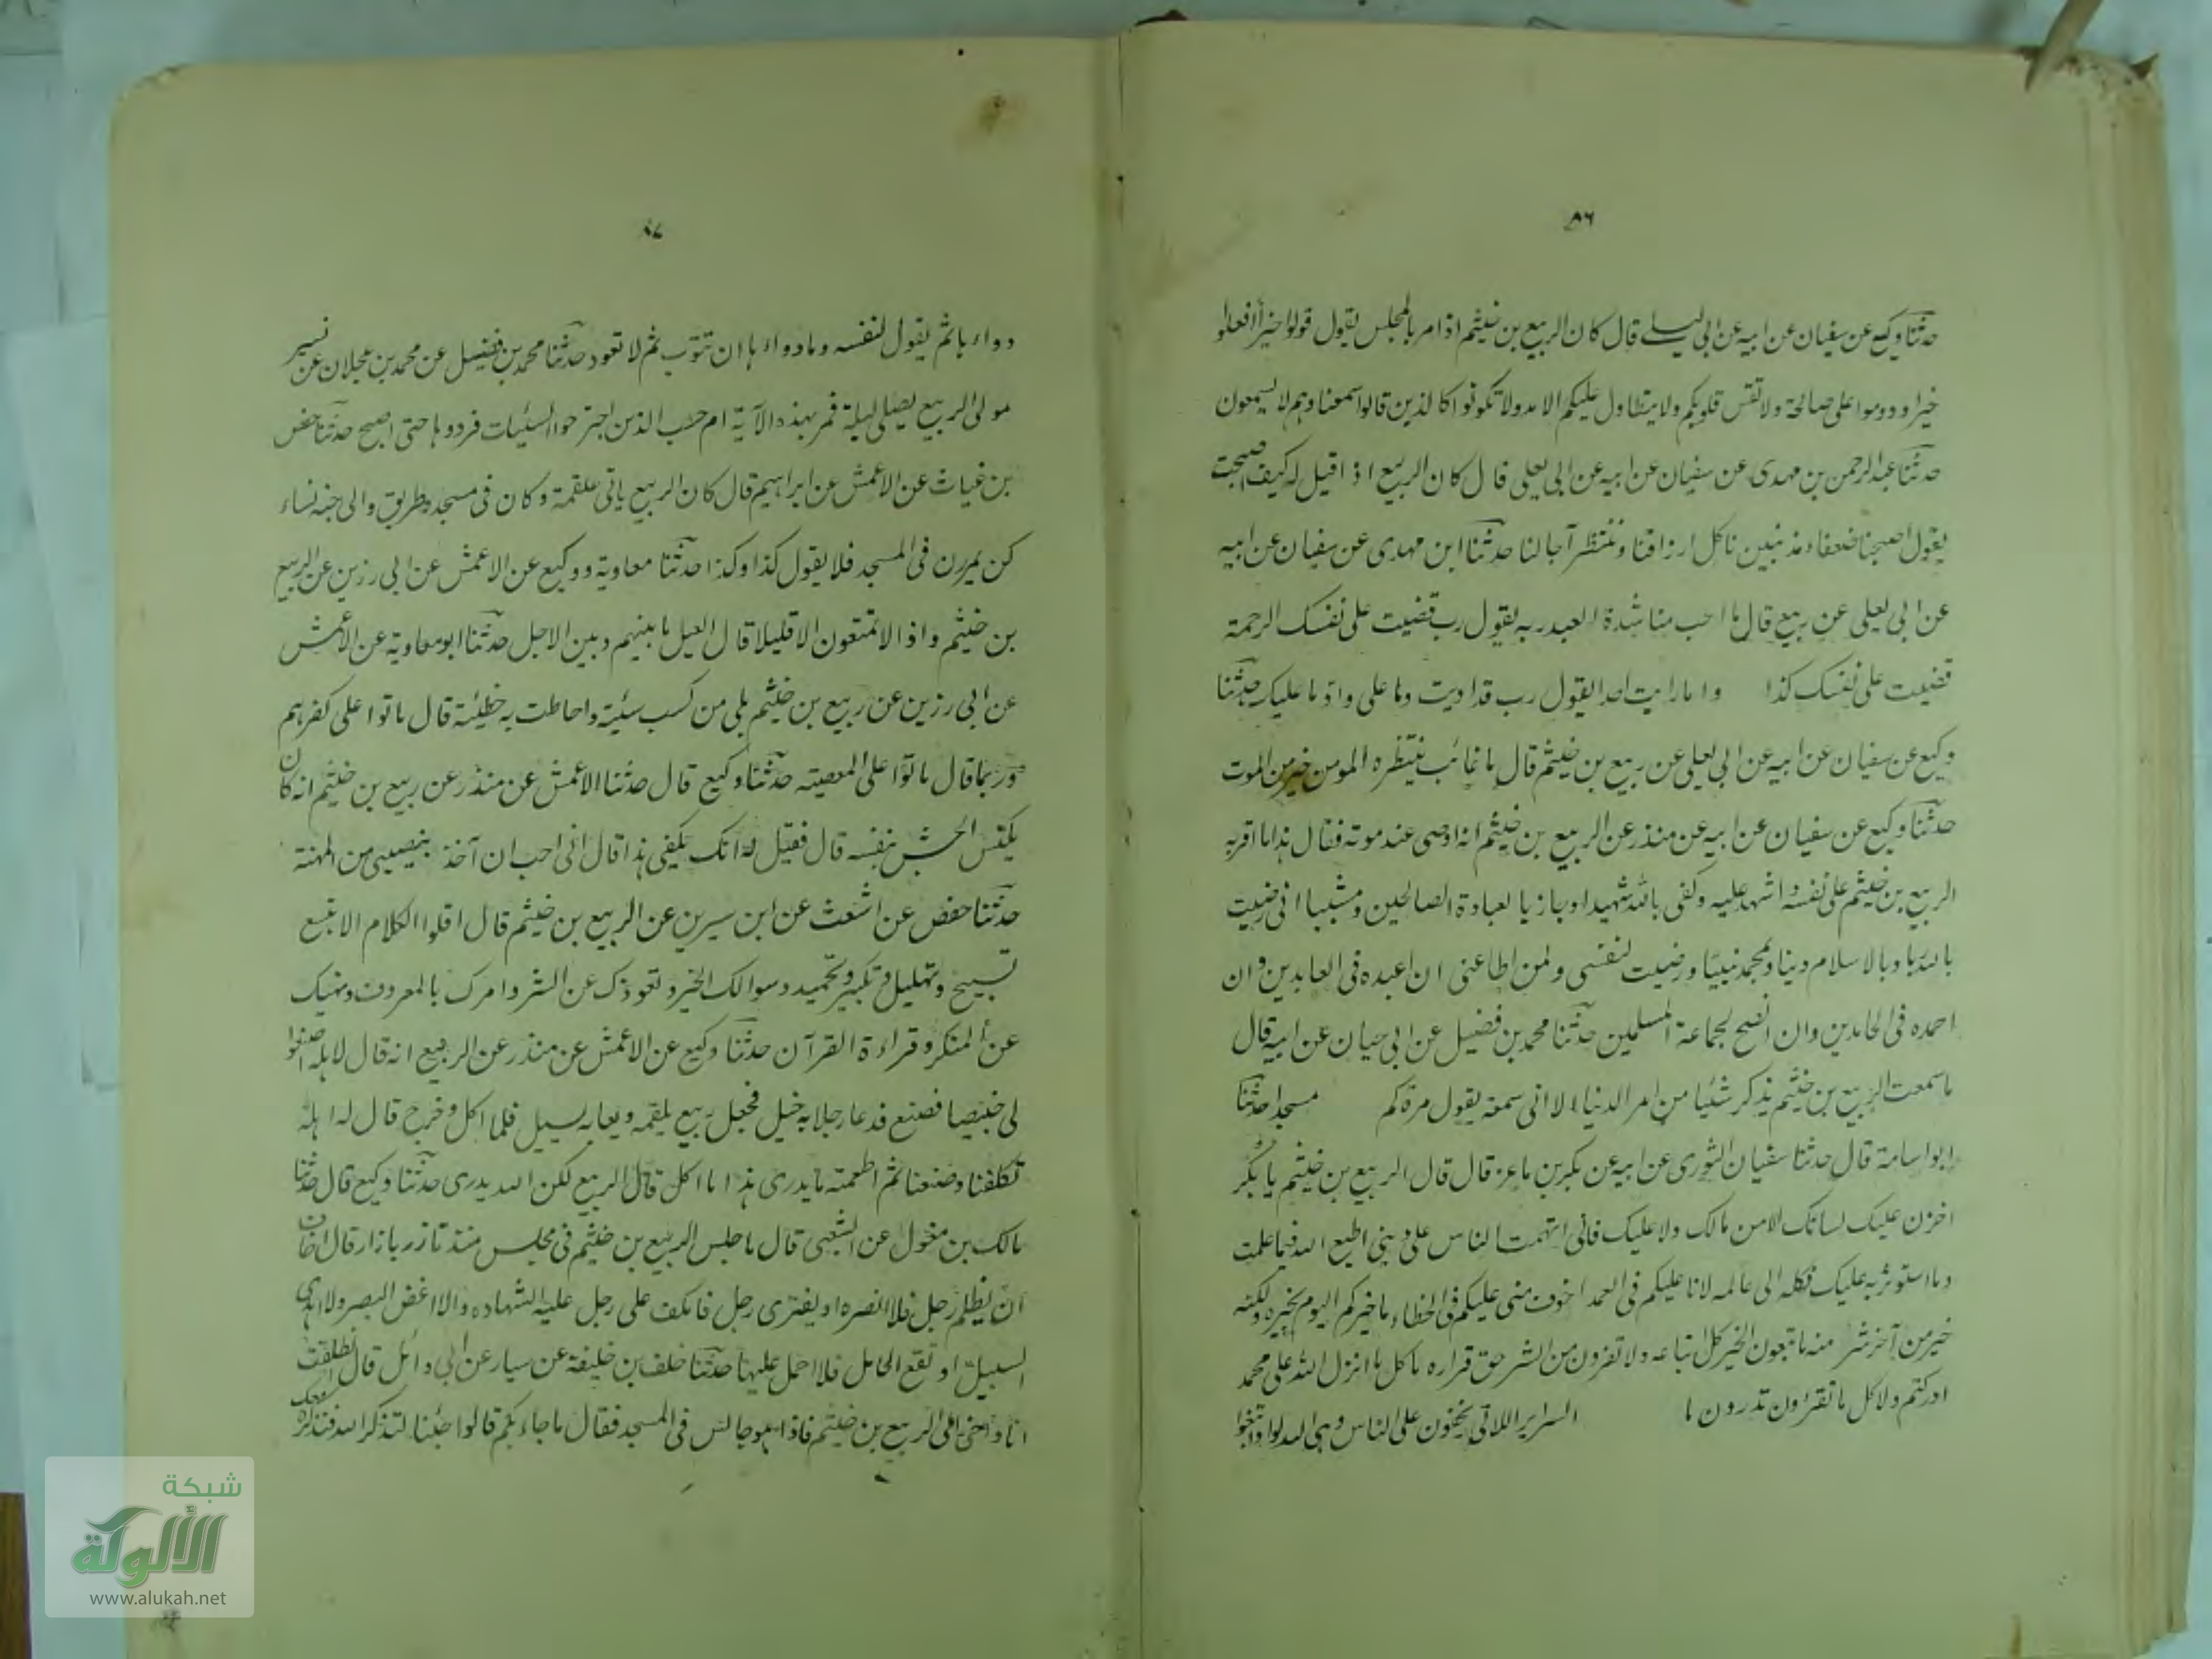 ٨٦
حدثنا وكيع عن سفيان عن ابيه عن ابى ليلے قال كان الربيع بن خيثم اذا مر بالمجلس يقول قولوا خيرا افعلوا
خيرا ودوموا على صالحة ولا تقس قلوبكم ولا يتطاول عليكم الامد ولا تكونوا كالذين قالوا سمعنا وهم لا يسمعون
حدثنا عبد الرحمن بن مهدى عن سفيان عن ابيه عن ابى يعلى قال كان الربيع اذا قيل له كيف اصبحت
يقول اصبحنا ضعفاء مذنبين ناكل ارزاقنا وننتظر آجالنا حدثنا ابن مهدى عن سفيان عن ابيه
عن ابى يعلى عن ربيع قال ما احب مناشدة العبد ربه يقول رب قضيت على نفسك الرحمة
قضيت على نفسك كذا وما رايت احدا يقول رب قد اديت وما على واد ما عليك حدثنا
وكيع عن سفيان عن ابيه عن ابى يعلى عن ربيع بن خيثم قال ما غائب ينتظره المومن خير من الموت
حدثنا وكيع عن سفيان عن ابيه عن منذر عن الربيع بن خيثم انه اوصى عند موته فقال هذا ما اقر به
الربيع بن خيثم على نفسه واشهد عليه وكفى بالله شهيدا وجازيا لعبادة الصالحين ومثيبا انى رضيت
بالله ربا وبالاسلام دينا وبمحمد نبيا ورضيت لنفسى ولمن اطاعنى ان اعبده فى العابدين وان
احمده فى الحامدين وان انصح لجماعة المسلمين حدثنا محمد بن فضيل عن ابى حيان عن ابيه قال
ما سمعت الربيع بن خيثم يذكر شئيا من امر الدنيا الا انى سمعته يقول مرة كم مسجدا حدثنا
ابو اسامة قال حدثنا سفيان الثورى عن ابيه عن بكر بن ماعز قال قال الربيع بن خيثم يا بكر
اخزن عليك لسانك الا من مالك ولا عليك فانى اتهمت الناس على دينى اطع الله فيما علمت
وما استوثر به عليك فكله الى عالمه لانا عليكم فى العمد اخوف منى عليكم فى الخطاء ما خيركم اليوم بخيره ولكنه
خير من آخر شر منه ما تتبعون الخير كل اتباعه ولا تفرون من الشر حق فراره ما كل ما انزل الله على محمد
ادركتم ولا كل ما تقرؤن تدرون ما السراير اللاتى يخفون على الناس وهى لله بواد ابتغوا
٨٧
دواءها ثم يقول لنفسه وما دواءها ان تتوب ثم لا تعود حدثنا محمد بن فضيل عن محمد بن عجلان عن نسير
مولى الربيع يصلى ليلة فمر بهذه الآية ام حسب الذين اجترحوا السئيات فرددها حتى اصبح حدثنا حفص
بن غياث عن الاعمش عن ابراهيم قال كان الربيع ياتى علقمة وكان فى مسجده طريق والى جنبه نساء
كن يمررن فى المسجد فلا يقول كذا وكذا حدثنا معاوية ووكيع عن الاعمش عن ابى رزين عن الربيع
بن خيثم واذا لا تمتعون الا قليلا قال القيل ما بينهم وبين الاجل حدثنا ابو معاوية عن الاعمش
عن ابى رزين عن ربيع بن خيثم بلى من كسب سئية واحاطت به خطيئة قال ماتوا على كفرهم
وربما قال ماتوا على المعصيته حدثنا وكيع قال حدثنا الاعمش عن منذر عن ربيع بن خيثم انه كان
يكنس الحش بنفسه قال فقيل له انك تكفى هذا قال انى احب ان آخذ بنصيبى من المهنة
حدثنا حفص عن اشعث عن ابن سيرين عن الربيع بن خيثم قال اقلوا الكلام الا بتسع
تسبيح وتهليل وتكبير وتحميد وسوالك الخير وتعوذك عن الشر وامرك بالمعروف ونهيك
عن المنكر وقراءة القرآن حدثنا وكيع عن الاعمش عن منذر عن الربيع انه قال لاهله اصنعوا
لى خبيصا فصنع فدعا رجلا به خبل فجعل ربيع يلقمه ولعابه يسيل فلما اكل وخرج قال له اهله
تكلفنا وصنعنا ثم اطعمته ما يدرى هذا ما اكل قال الربيع لكن الله يدرى حدثنا وكيع قال حدثنا
مالك بن مغول عن الشعبى قال ما جلس الربيع بن خيثم فى مجلس منذ تازر بازار قال اخاف
ان يظلم رجل فلا انصره او يفترى رجل فاكلف على رجل عليه الشهاده والا اغض البصر ولا اهدى
السبيل او تقع الحامل فلا احمل عليها حدثنا خلف بن خليفة عن سيار عن ابى وائل قال انطلقت
انا واخى الى الربيع بن خيثم فاذا هو جالس فى المسجد فقال ما جاء بكم قالوا جئنا لتذكر الله فنذكره معك
شبكة
الألوكة
www.alukah.net